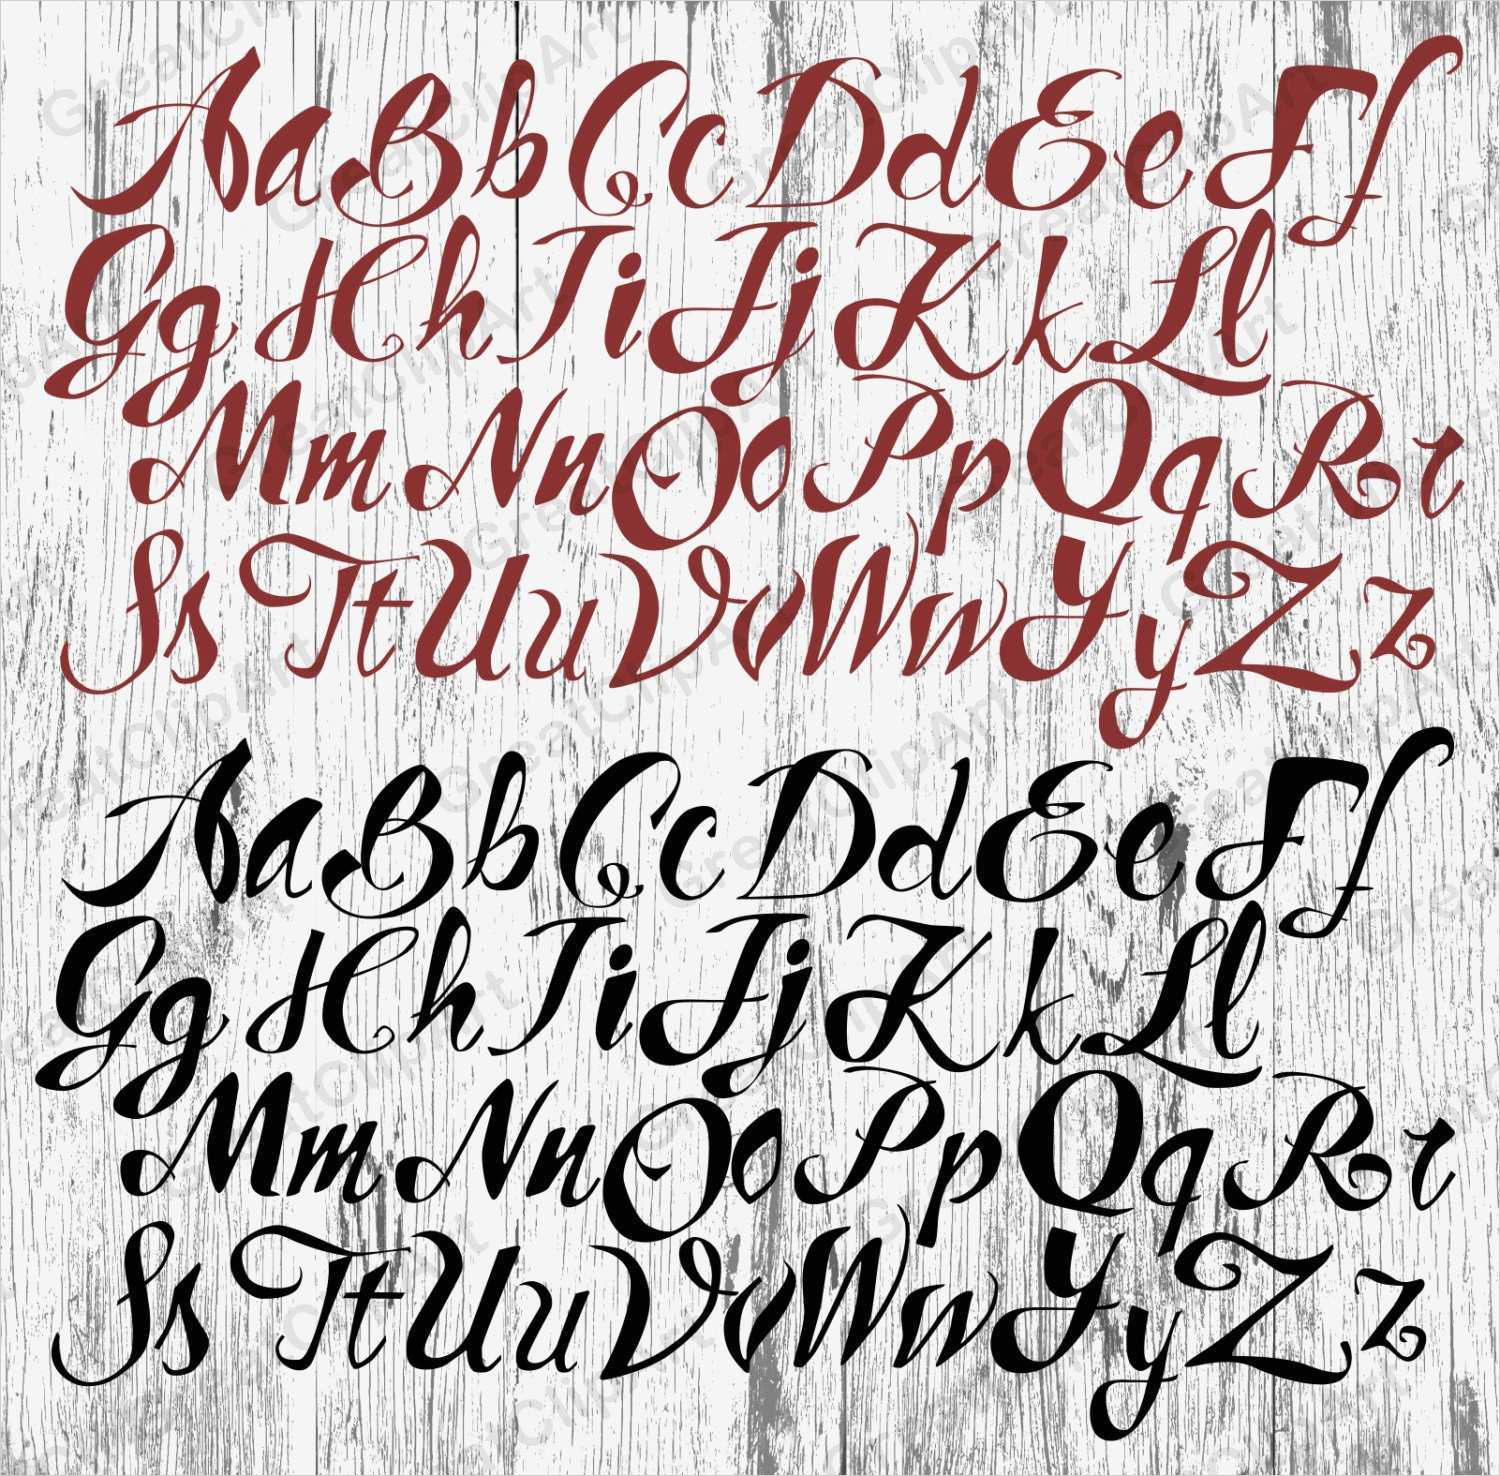 Aa Bb Cc Dd Ee Ff
Gg Hh Ii Jj Kk Ll
Mm Nn Oo Pp Qq Rr
Ss Tt Uu Vv Ww Yy Zz
Aa Bb Cc Dd Ee Ff
Gg Hh Ii Jj Kk Ll
Mm Nn Oo Pp Qq Rr
Ss Tt Uu Vv Ww Yy Zz
GreatClipArt